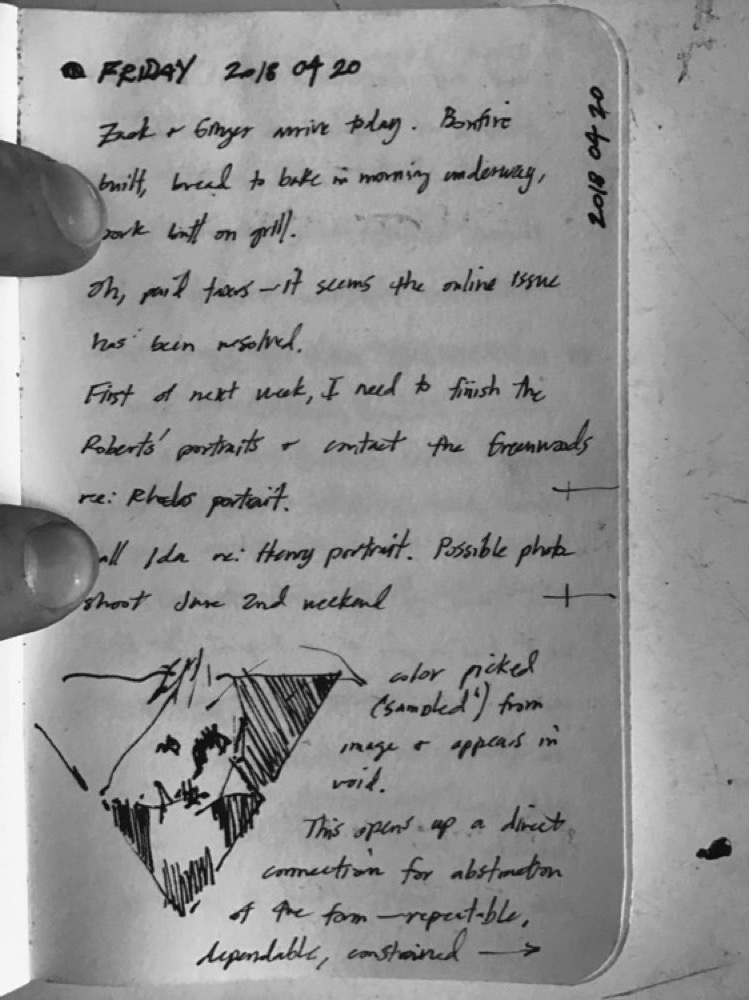 FRIDAY 2018 04 20
2018 04 20
Zack + Ginger arrive today. Bonfire
built, bread to bake in morning underway,
pork butt on grill.
Oh, paid taxes — it seems the online issue
has been resolved.
First of next week, I need to finish the
Roberts' portraits + contact the Greenwoods
re: portrait.
all Ida re: Henry portrait. Possible photo
shoot June 2nd weekend
color picked
('sampled') from
image + appears in
void.
This opens up a direct
connection for abstraction
of the form — repeatable,
dependable, constrained →